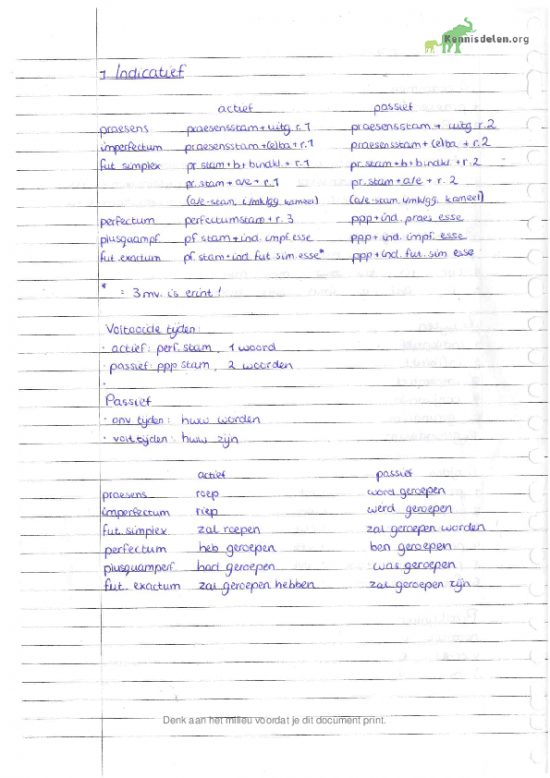 Kennisdelen.org
1 Indicatief
actief passief
praesens praesensstam + uitg r.1 praesensstam + uitg r.2
imperfectum praesensstam + (e)ba + r.1 praesensstam + (e)ba + r.2
fut simplex pr. stam + b + bindkl. + r.1 pr. stam + b + bindkl + r.2
pr. stam + a/e + r.1 pr. stam + a/e + r.2
(a/e-stam (a/e-stam
perfectum perfectumstam + r.3 ppp + ind. praes esse
plusquampf. pf stam + ind. impf. esse ppp + ind. impf. esse
fut. exactum pf stam + ind. fut sim. esse* ppp + ind. fut. sim esse
* = 3 mv. is erint!
Voltooide tijden:
· actief: perf. stam, 1 woord
· passief: ppp stam, 2 woorden
·
Passief
· onv tijden: hww worden
· volt tijden: hww zijn
actief passief
praesens roep word geroepen
imperfectum riep werd geroepen
fut. simplex zal roepen zal geroepen worden
perfectum heb geroepen ben geroepen
plusquamperf. had geroepen was geroepen
fut. exactum zal geroepen hebben zal geroepen zijn
Denk aan het milieu voordat je dit document print.